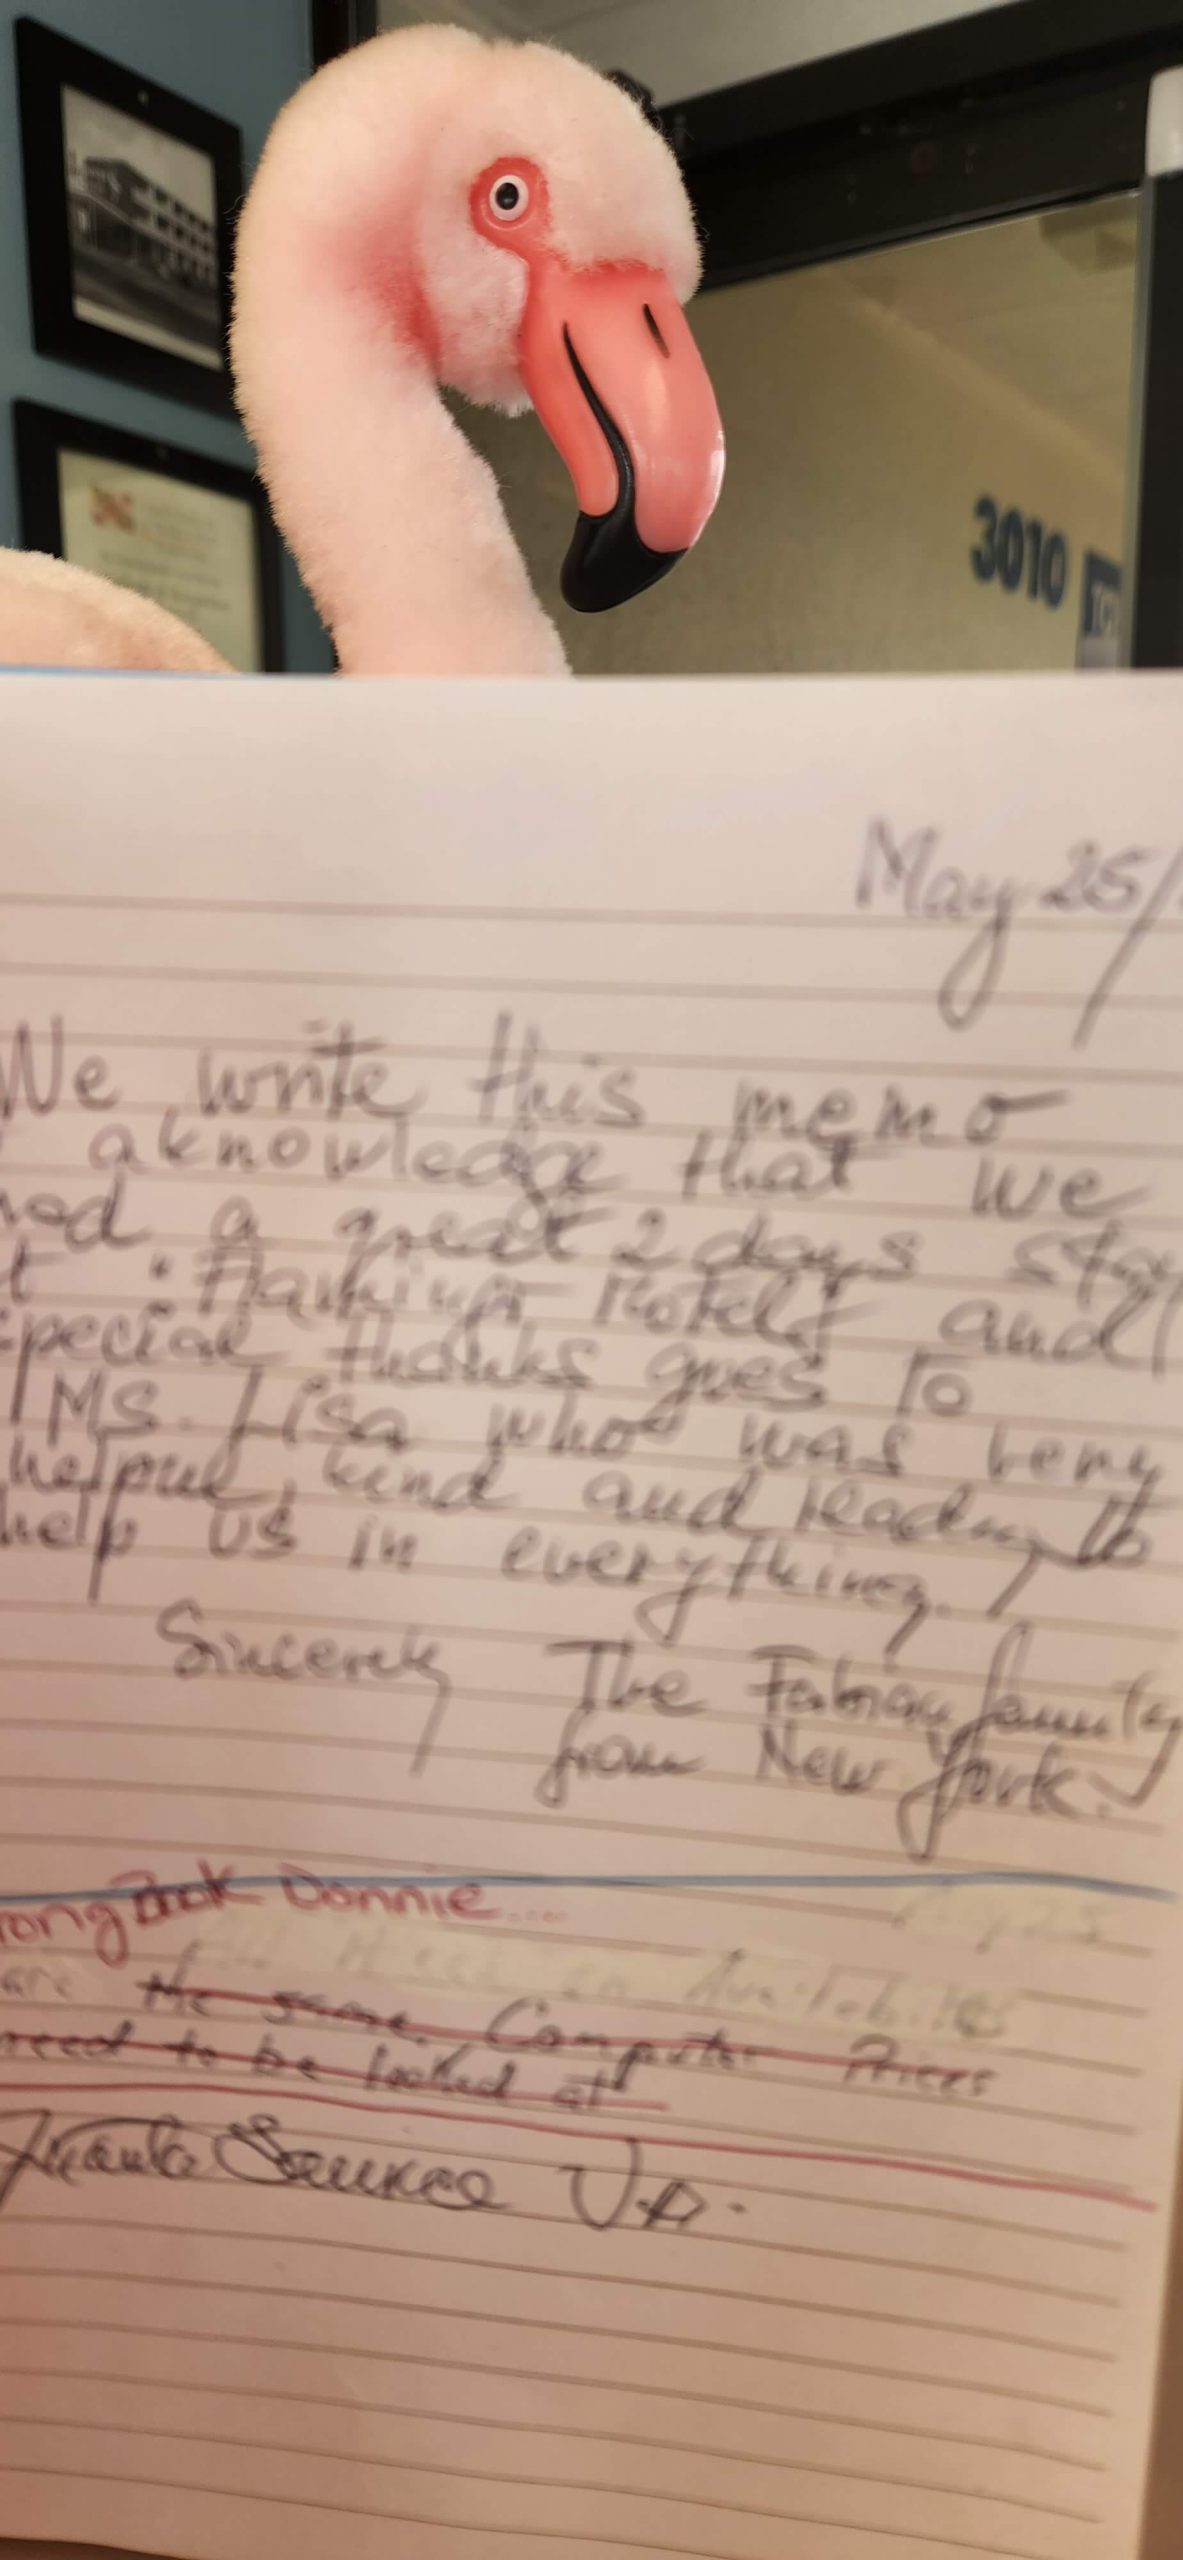 3010
May 25/
We write this memo
aknowledge that we
had a great 2 days stay
"Flamingo Hotel" and
special thanks goes to
Ms. Lisa who was very
helpful, kind and ready to
help us in everything.
Sincerely The Fabian family
from New York.
rong Book Donnie....
are the same. Computer Prices
need to be looked at